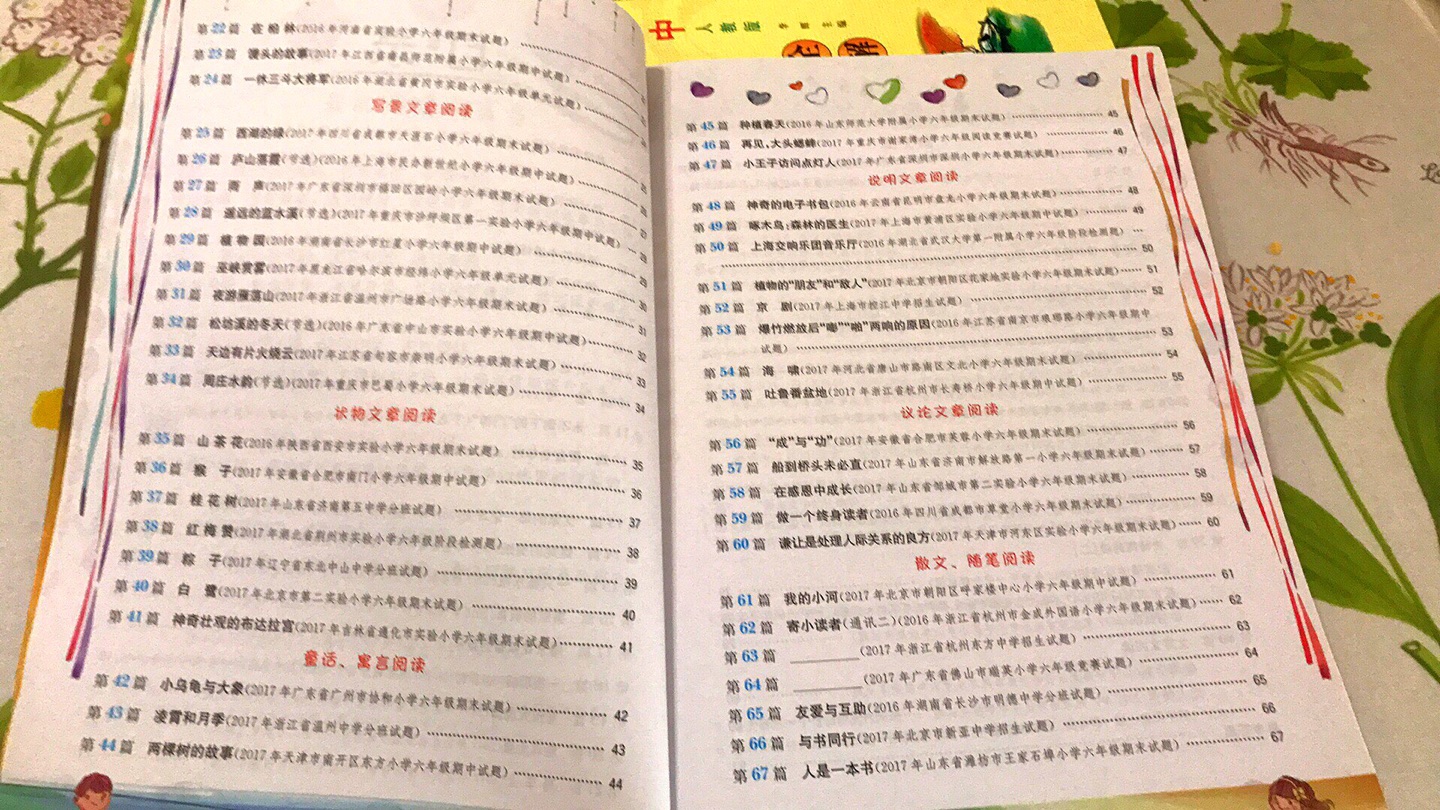 第22篇 在柏林(2016年河南省实验小学六年级期末试题)
第23篇 馒头的故事(2017年江西省南昌师范附属小学六年级期中试题)
第24篇 一休三斗大将军(2016年湖北省黄冈市实验小学六年级单元试题)
写景文章阅读
第25篇 西湖的绿(2017年四川省成都市天涯石小学六年级期末试题)
第26篇 庐山落霞(节选)(2016年上海市民办新世纪小学六年级期中试题)
第27篇 雨 声(2017年广东省深圳市福田区园岭小学六年级期末试题)
第28篇 遥远的蓝水溪(节选)(2017年重庆市沙坪坝区第一实验小学六年级期中试题)
第29篇 植物园(2016年湖南省长沙市红星小学六年级期中试题)
第30篇 巫峡赏雾(2017年黑龙江省哈尔滨市经纬小学六年级单元试题) 30
第31篇 夜游雁荡山(2017年浙江省温州市广场路小学六年级期末试题) 31
第32篇 松坊溪的冬天(节选)(2016年广东省中山市实验小学六年级期中试题) 32
第33篇 天边有片火烧云(2017年江苏省句容市崇明小学六年级期末试题) 33
第34篇 周庄水韵(节选)(2017年重庆市巴蜀小学六年级期末试题) 34
状物文章阅读
第35篇 山茶花(2016年陕西省西安市实验小学六年级期末试题) 35
第36篇 猴 子(2017年安徽省合肥市南门小学六年级期中试题) 36
第37篇 桂花树(2017年山东省济南第五中学分班试题) 37
第38篇 红梅赞(2017年湖北省荆州市实验小学六年级阶段检测题) 38
第39篇 粽 子(2017年辽宁省东北中山中学分班试题) 39
第40篇 白 鹭(2017年北京市第二实验小学六年级期末试题) 40
第41篇 神奇壮观的布达拉宫(2017年吉林省通化市实验小学六年级期末试题) 41
童话、寓言阅读
第42篇 小乌龟与大象(2017年广东省广州市协和小学六年级期末试题) 42
第43篇 凌霄和月季(2017年浙江省温州中学分班试题) 43
第44篇 两棵树的故事(2017年天津市南开区东方小学六年级期中试题) 44
中 人教版 主编
全解
第45篇 种植春天(2016年山东师范大学附属小学六年级期末试题) 45
第46篇 再见,大头蟋蟀(2017年重庆市谢家湾小学六年级阅读竞赛题) 46
第47篇 小王子访问点灯人(2017年广东省深圳市深圳小学六年级期末试题) 47
说明文章阅读
第48篇 神奇的电子书包(2016年云南省昆明市盘龙小学六年级期末试题) 48
第49篇 啄木鸟:森林的医生(2017年上海市黄浦区实验小学六年级期中试题) 49
第50篇 上海交响乐团音乐厅(2016年湖北省武汉大学第一附属小学六年级阶段检测题)
50
第51篇 植物的“朋友”和“敌人”(2017年北京市朝阳区花家地实验小学六年级期末试题) 51
第52篇 京 剧(2017年上海市控江中学招生试题) 52
第53篇 爆竹燃放后“嘭”“啪”两响的原因(2016年江苏省南京市琅琊路小学六年级期中
试题) 53
第54篇 海 啸(2017年河北省唐山市路南区文北小学六年级期末试题) 54
第55篇 吐鲁番盆地(2017年浙江省杭州市长寿桥小学六年级期中试题) 55
议论文章阅读
第56篇 “成”与“功”(2017年安徽省合肥市芙蓉小学六年级期末试题) 56
第57篇 船到桥头未必直(2017年山东省济南市解放路第一小学六年级期末试题) 57
第58篇 在感恩中成长(2017年山东省邹城市第二实验小学六年级期末试题) 58
第59篇 做一个终身读者(2016年四川省成都市草堂小学六年级期末试题) 59
第60篇 谦让是处理人际关系的良方(2017年天津市河东区实验小学六年级期末试题) 60
散文、随笔阅读
第61篇 我的小河(2017年北京市朝阳区呼家楼中心小学六年级期中试题) 61
第62篇 寄小读者(通讯二)(2016年浙江省杭州市金成外国语小学六年级期末试题) 62
第63篇 (2017年浙江省杭州东方中学招生试题) 63
第64篇 (2017年广东省佛山市瑞英小学六年级竞赛试题) 64
第65篇 友爱与互助(2016年湖南省长沙市明德中学分班试题) 65
第66篇 与书同行(2017年北京市新亚中学招生试题) 66
第67篇 人是一本书(2017年山东省潍坊市王家石埠小学六年级期末试题) 67